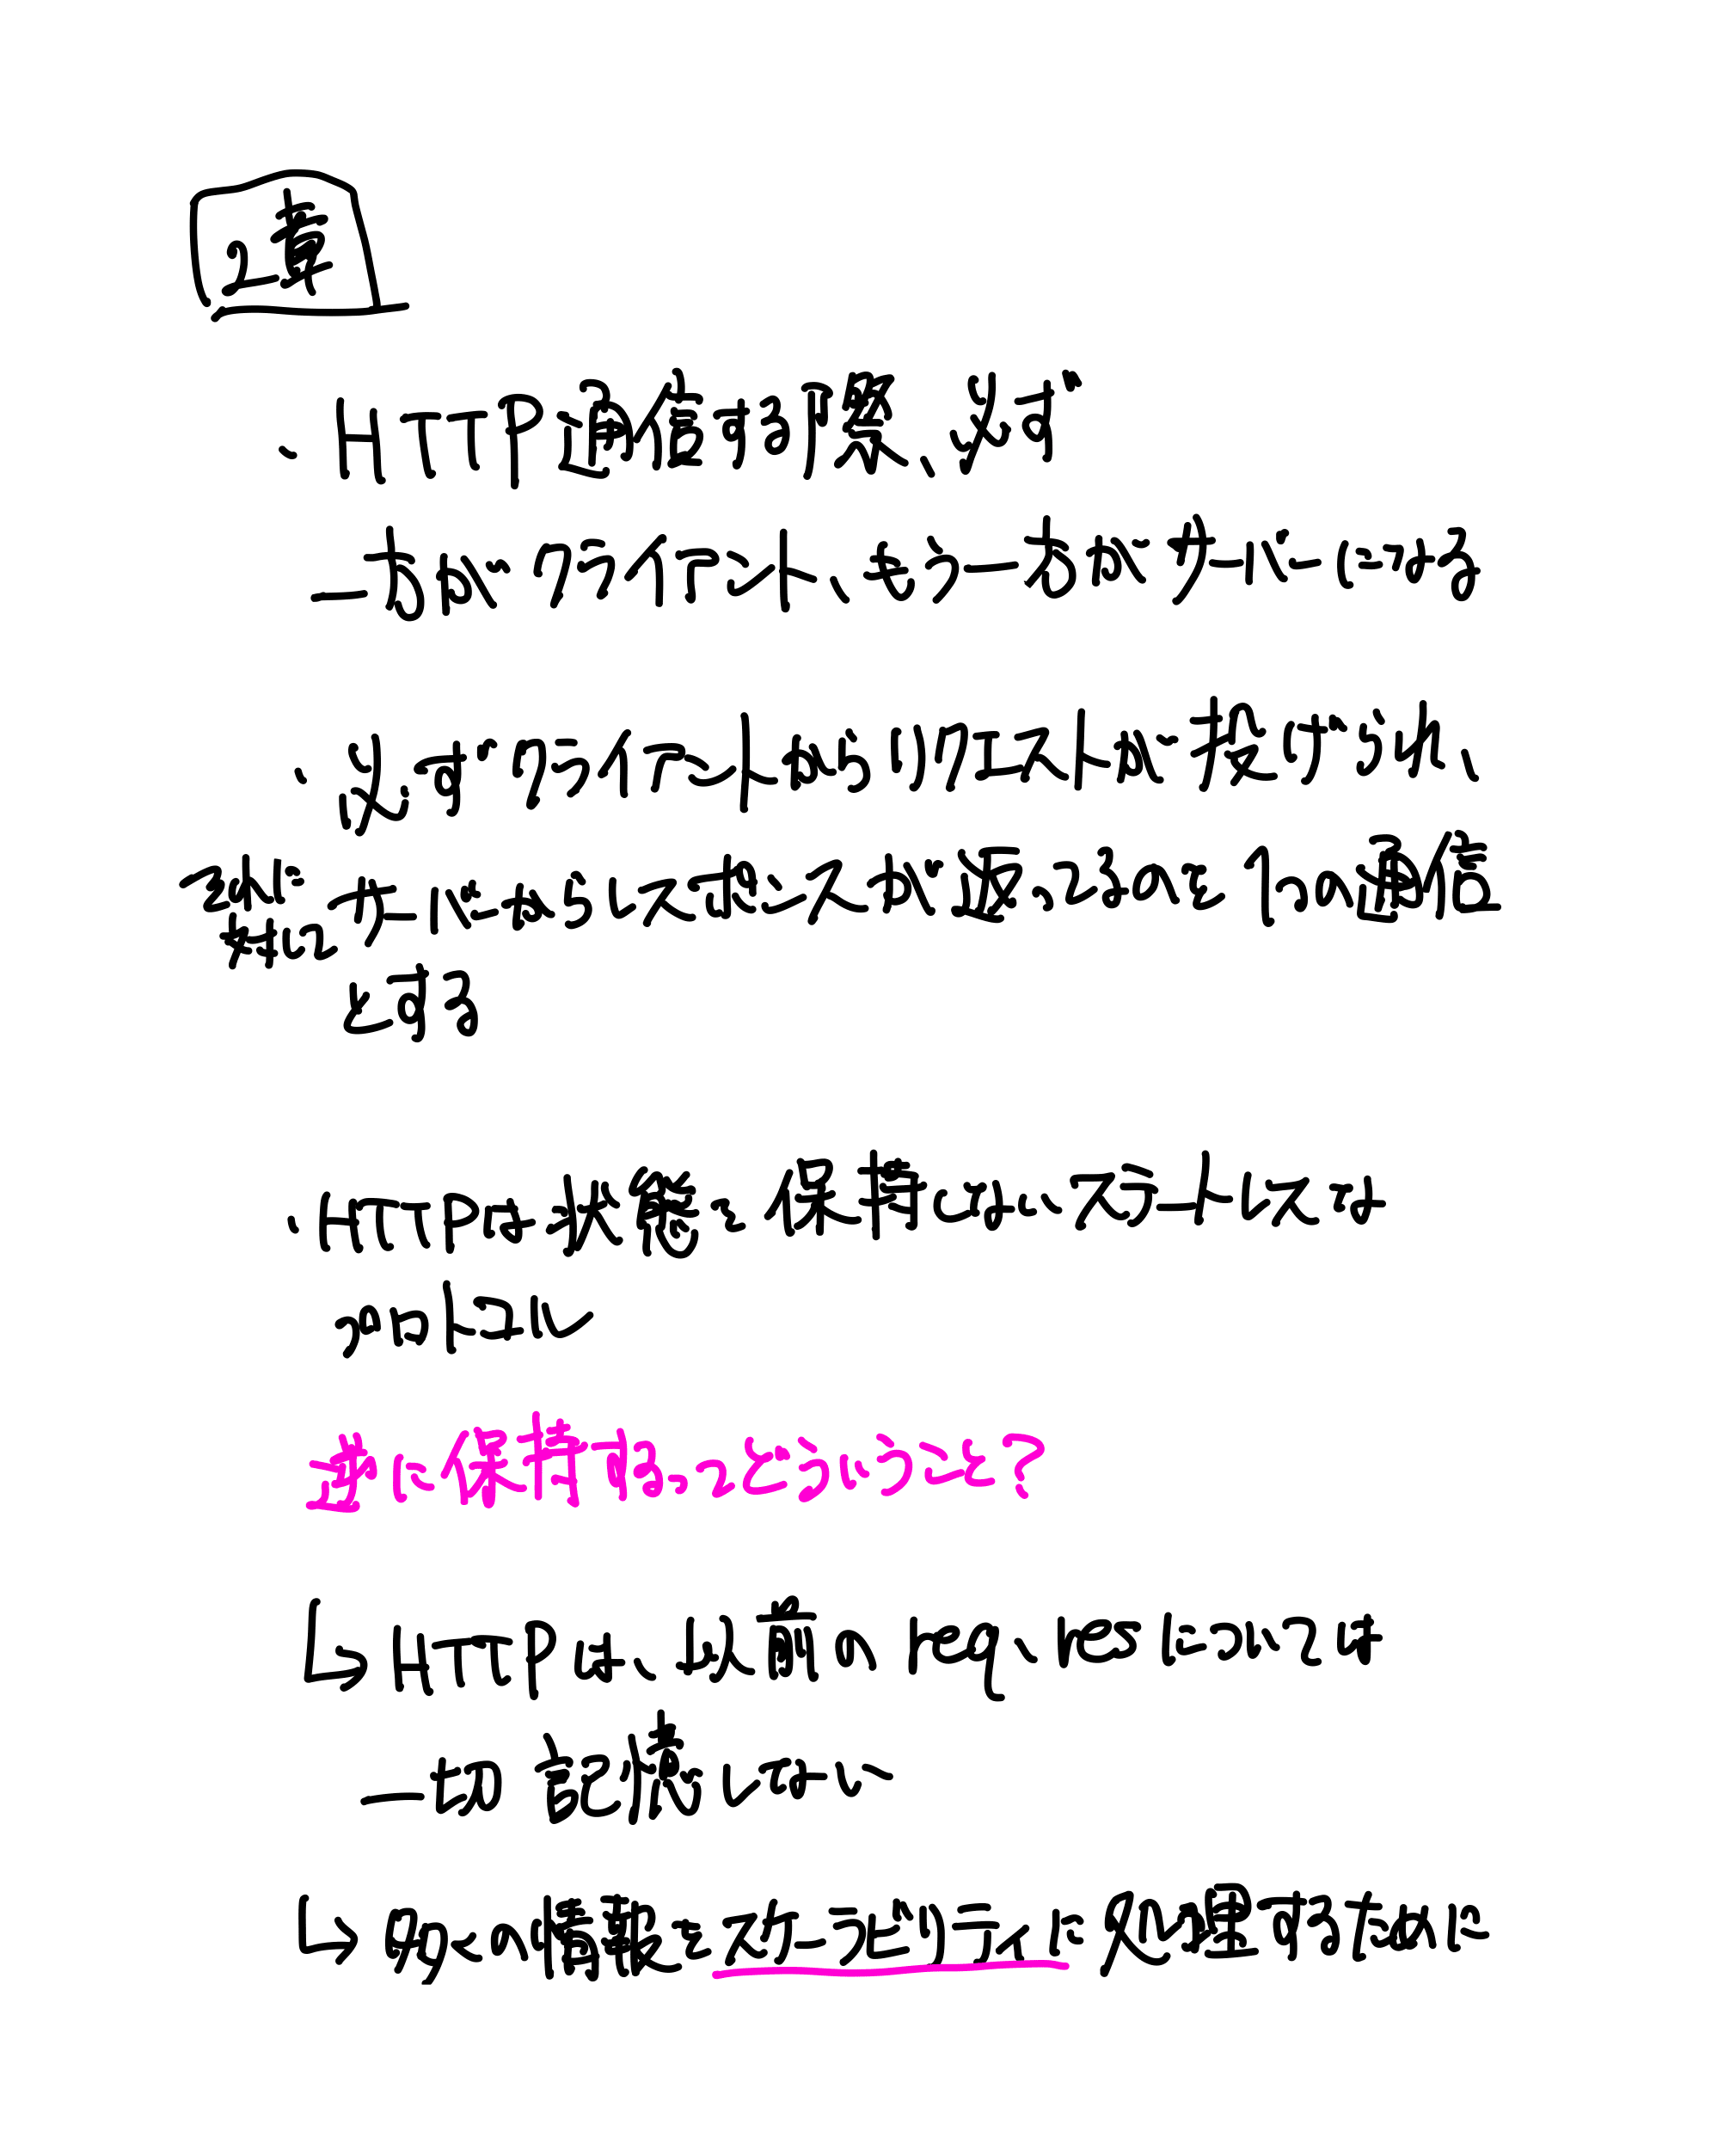 2章
・HTTP通信する際、必ず
一方がクライアント、もう一方がサーバーになる
・必ずクライアントからリクエストが投げられ、
それに対して
サーバーからレスポンスが返ってくるのを1つの通信
とする
・HTTPは状態を保持しないステートレスな
プロトコル
逆に保持するってどういうこと?
↳HTTPは、以前のreq、resについては
一切記憶しない
↳多くの情報をスケーラビリティに処理するために